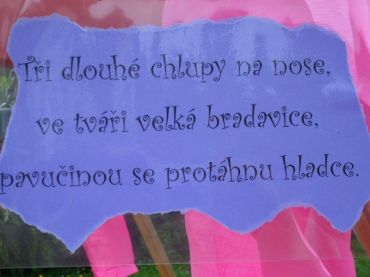 Tři dlouhé chlupy na nose,
ve tváři velká bradavice,
pavučinou se protáhnu hladce.